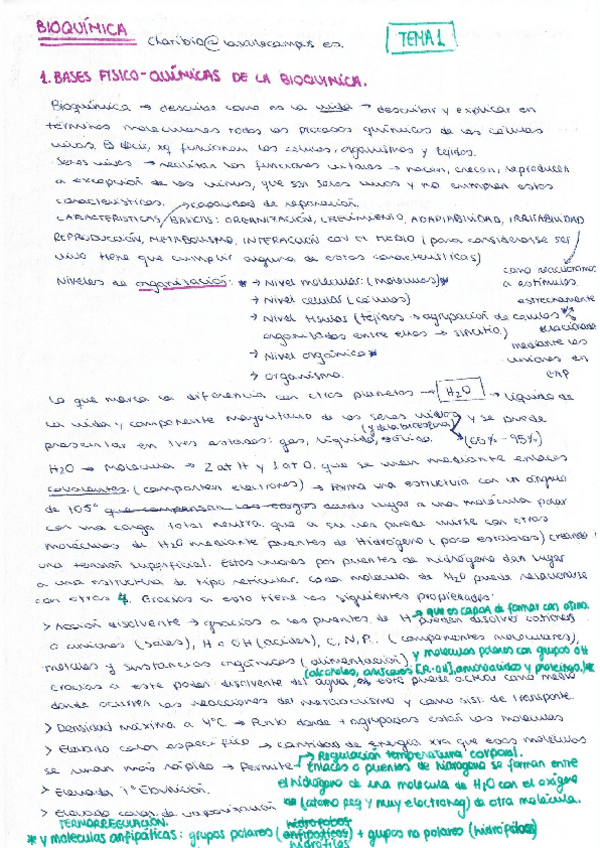 BIOQUÍMICA
TEMA 1
1. BASES FISICO-QUÍMICAS DE LA BIOQUIMICA.
Bioquímica → describe como es la vida → describir y explicar en
términos moleculares todos los procesos químicos de las células
vivas. Es decir, xq funcionan las células, organismos y tejidos.
Seres vivos → realizan las funciones vitales → nacen, crecen, reproducen
a excepción de los virus, que son seres vivos y no cumplen estas
características. → capacidad de reparación.
CARACTERISTICAS BÁSICAS: ORGANIZACIÓN, CRECIMIENTO, ADAPTABILIDAD, IRRITABILIDAD
REPRODUCCIÓN, METABOLISMO, INTERACCIÓN CON EL MEDIO (para considerarse ser
vivo tiene que cumplir alguna de estas características)
como reaccionamos
a estímulos.
Niveles de organización: * → Nivel molecular: (moléculas) *
→ Nivel celular (células)
→ Nivel tisular (tejidos → agrupación de células *
organizadas entre ellas → sincitio)
estrechamente
relacionadas
mediante las
uniones en
→ Nivel orgánico *
→ organismo.
Lo que marca la diferencia con otros planetas → H2O → líquido de
la vida y componente mayoritario de los seres vivos y se puede
(y de la biosfera)
presentar en tres estados: gas, líquido, sólido. (60% - 95%)
H2O → Molécula → 2 at H y 1 at O, que se unen mediante enlaces
covalentes. (comparten electrones) → forma una estructura con un ángulo
de 105° que compensan las cargas dando lugar a una molécula polar
con una carga total neutra, que a su vez puede unirse con otras
moléculas de H2O mediante puentes de Hidrógeno (poco estables) creando
una tensión superficial. Estas uniones por puentes de hidrógeno dan lugar
a una estructura de tipo reticular. Cada molécula de H2O puede relacionarse
con otras 4. Gracias a esto tiene las siguientes propiedades:
→ que es capaz de formar con otros.
> Acción disolvente → gracias a los puentes de H pueden disolver cationes
o aniones (sales), H o OH (ácidos), C, N, P.. (componentes moleculares),
metales y sustancias orgánicas (alimentación) y moléculas polares con grupos OH
(alcoholes, azúcares [R-OH], aminoácidos y proteínas.) *
Gracias a este poder disolvente del agua, es este puede actuar como medio
donde ocurren las reacciones del metabolismo y como sist. de transporte.
> Densidad máxima a 4°C → Punto donde + agrupadas están las moléculas
> Elevado calor específico → cantidad de energía xra que esas moléculas
se unan más rápido → Permite → Regulación temperatura corporal.
Enlaces o puentes de hidrógeno se forman entre
el hidrógeno de una molécula de H2O con el oxígeno
(átomo peq y muy electroneg) de otra molécula.
> Elevada Tª Ebullición.
> Elevado calor de vaporización
TERMORREGULACIÓN.
hidrofobos
* y moléculas anfipáticas: grupos polares (anfipaticos) + grupos no polares (hidrófobos)
hidrófilos